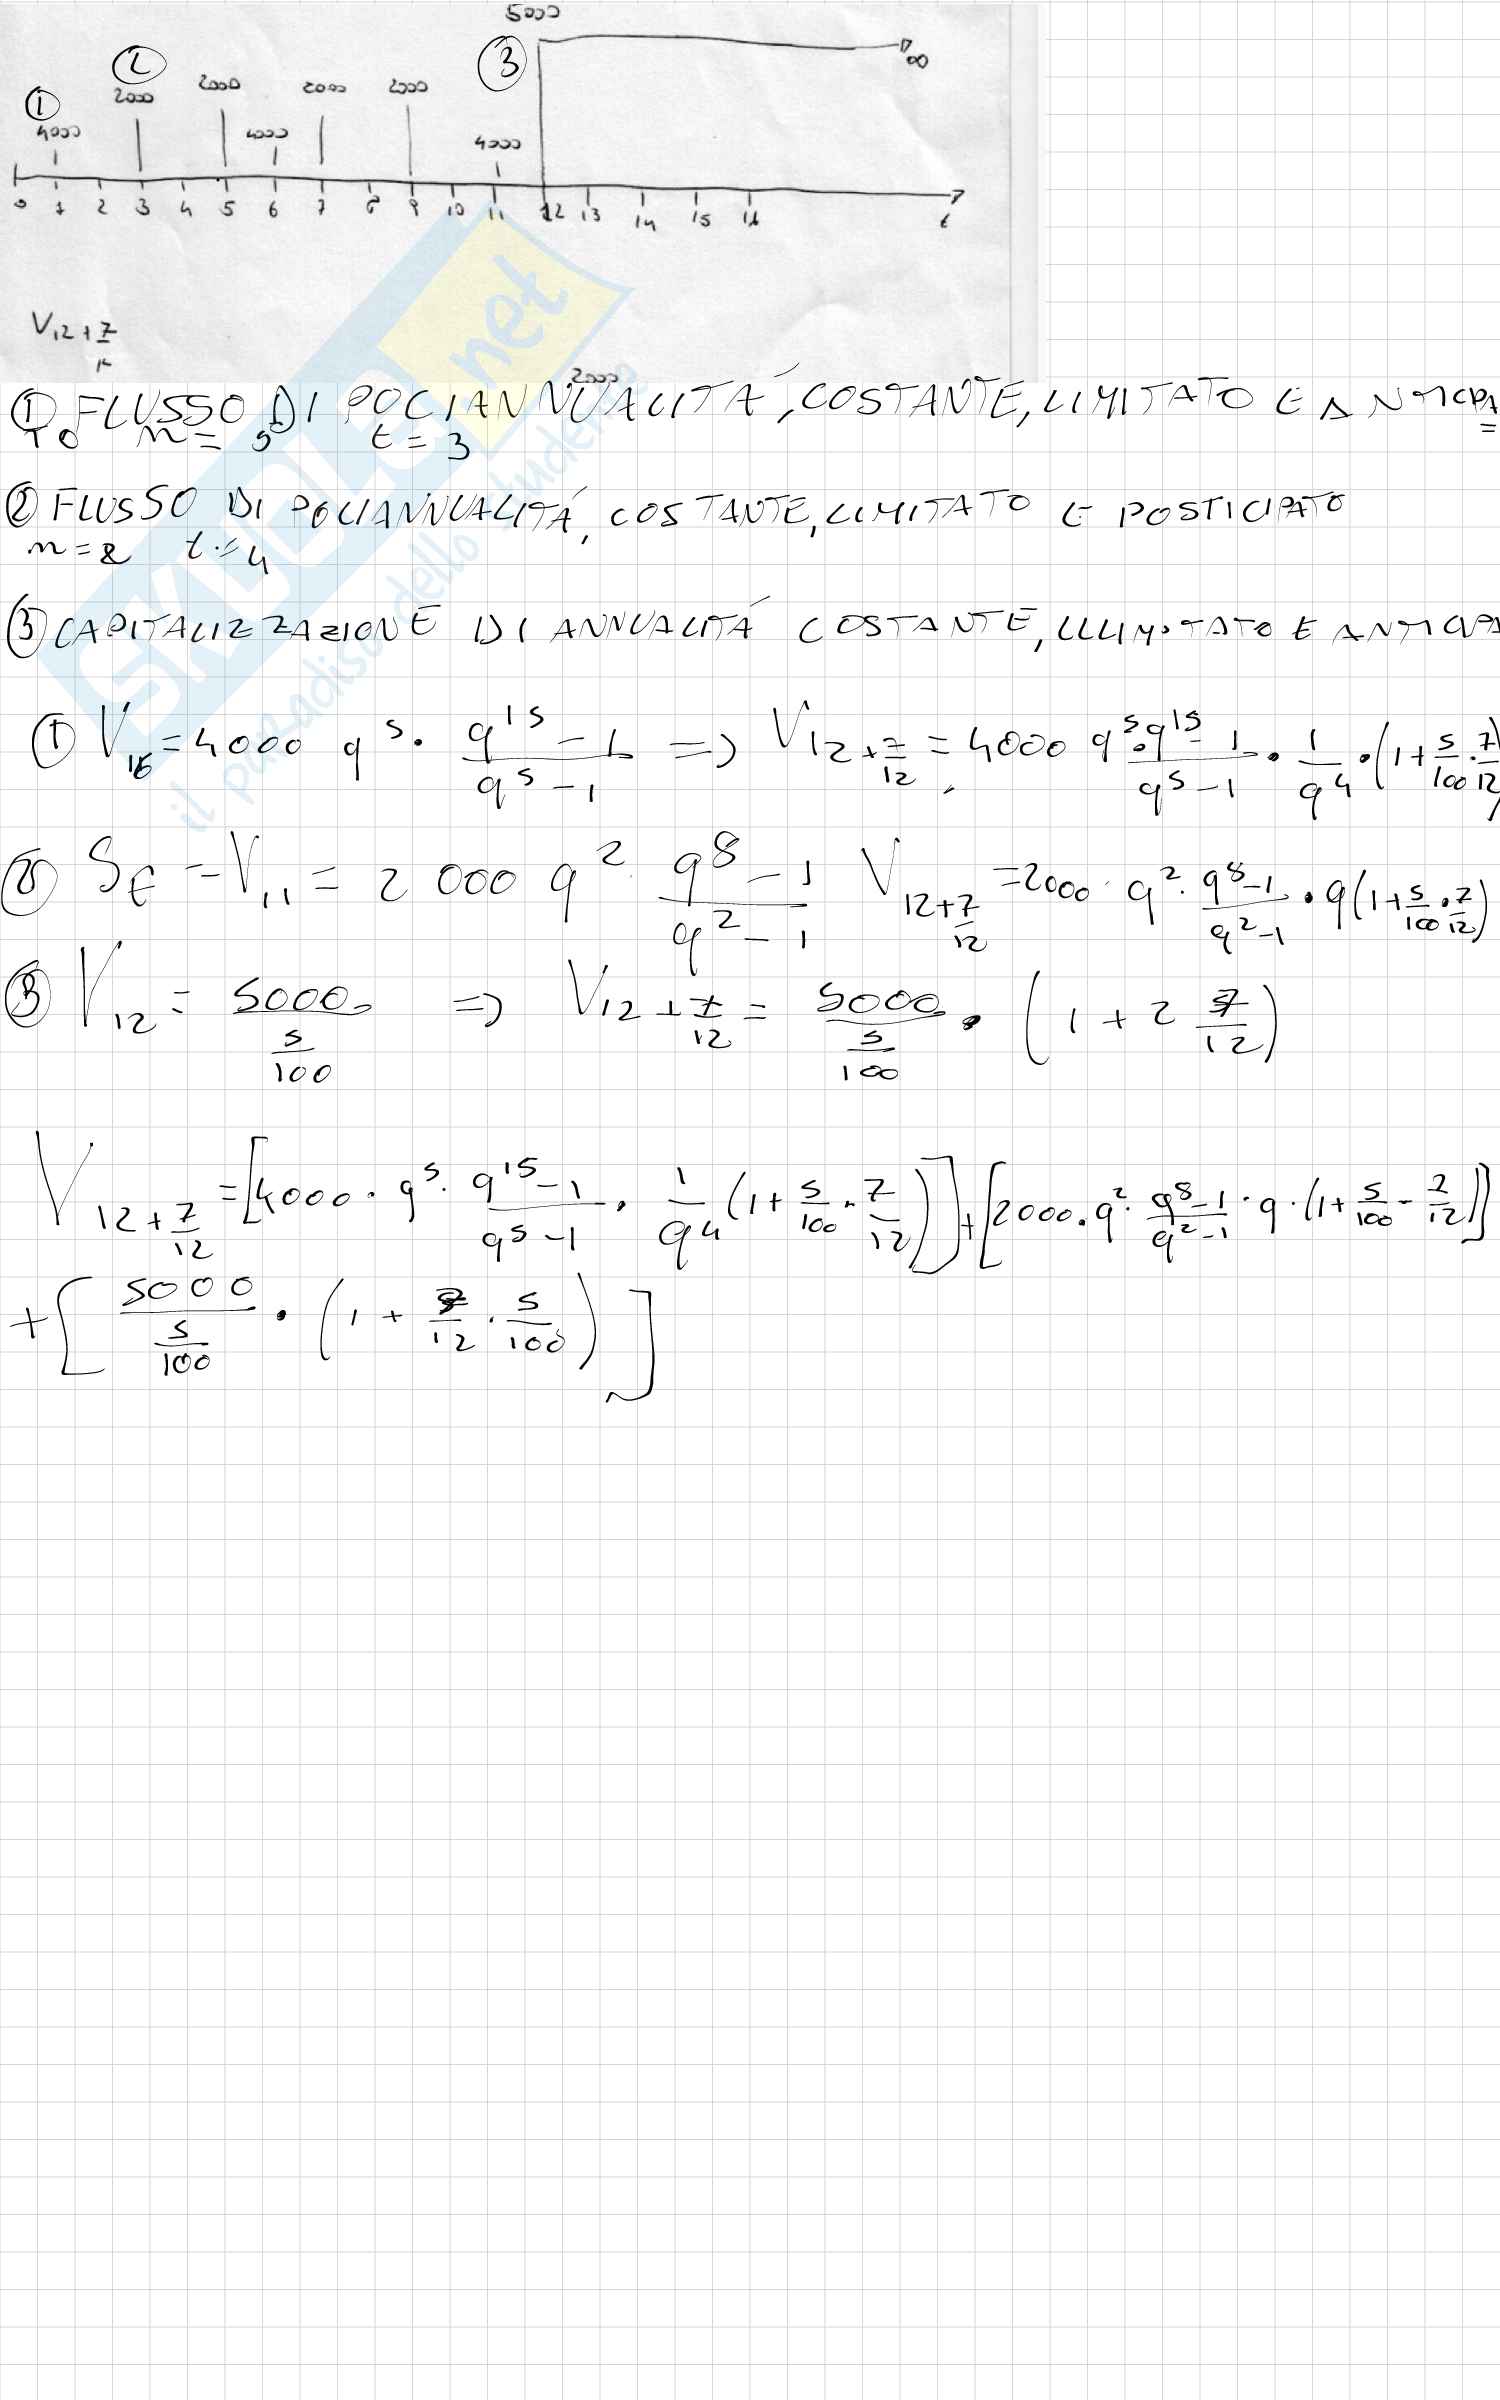 5000
① ② ③ ∞
2000 2000 2000 2000
4000 4000 4000
0 1 2 3 4 5 6 7 8 9 10 11 12 13 14 15 16 t
V 12 + 7/12
2000
① FLUSSO DI POLIANNUALITÁ, COSTANTE, LIMITATO E ANTICIPA=
TO n = 5 t = 3
② FLUSSO DI POLIANNUALITÁ, COSTANTE, LIMITATO E POSTICIPATO
n = 2 t = 4
③ CAPITALIZZAZIONE DI ANNUALITÁ COSTANTE, ILLIMITATO E ANTICIPA
① V16 = 4000 q^5 · (q^15 - 1)/(q^5 - 1) => V12+7/12 = 4000 q^5 · (q^15 - 1)/(q^5 - 1) · 1/q^4 · (1 + 5/100 · 7/12)
② V11 = 2000 q^2 · (q^8 - 1)/(q^2 - 1) V12+7/12 = 2000 · q^2 · (q^8 - 1)/(q^2 - 1) · q (1 + 5/100 · 7/12)
③ V12 = 5000/(5/100) => V12+7/12 = 5000/(5/100) · (1 + 2 7/12)
V12+7/12 = [4000 · q^5 · (q^15 - 1)/(q^5 - 1) · 1/q^4 (1 + 5/100 · 7/12)] + [2000 · q^2 · (q^8 - 1)/(q^2 - 1) · q · (1 + 5/100 - 7/12)]
+ [5000/(5/100) · (1 + 7/12 · 5/100)]
SKUOLA.net
il paradiso dello studente